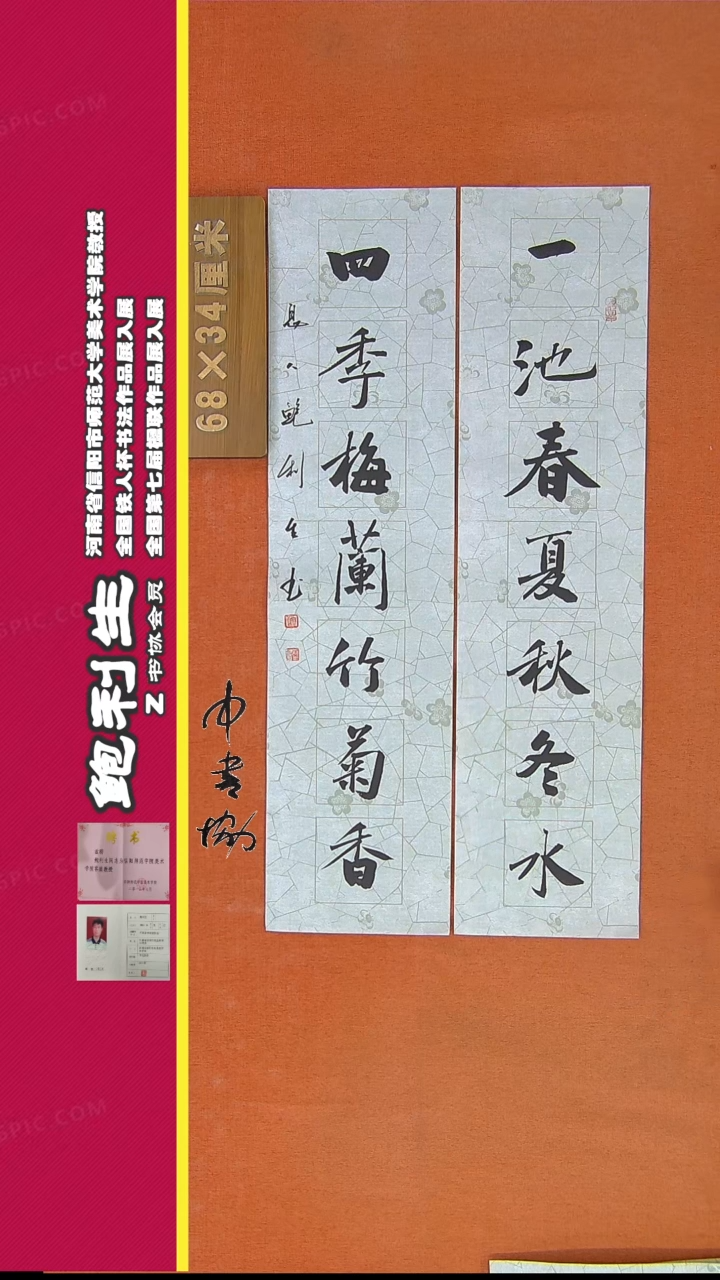 一池春夏秋冬水
四季梅蘭竹菊香
鲍利生
68×34厘米
中书协
鲍利生
河南省信阳市师范大学美术学院教授
全国铁人杯书法作品展入展
全国第七届楹联作品展入展
Z 书协会员
聘书